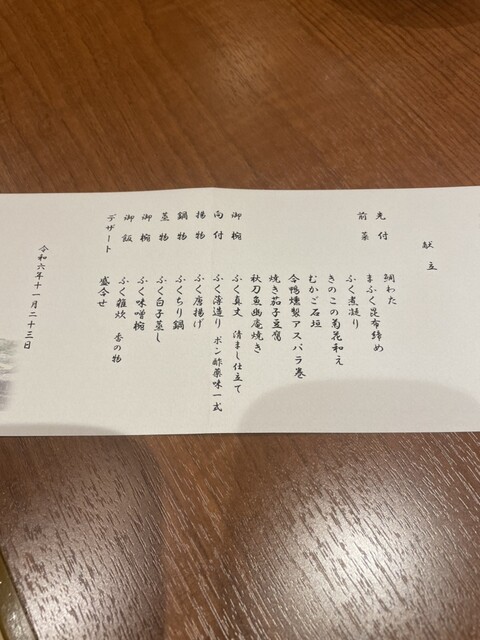 献立
先付 鯛わた
前菜 まふぐ昆布締め
ふぐ煮凝り
きのこの菊花和え
むかご石垣
合鴨燻製アスパラ巻
焼き茄子豆腐
秋刀魚幽庵焼き
御椀 ふぐ真丈 清まし仕立て
向付 ふぐ薄造り ポン酢薬味一式
揚物 ふぐ唐揚げ
鍋物 ふぐちり鍋
蒸物 ふぐ白子蒸し
御椀 ふぐ味噌椀
御飯 ふぐ雑炊 香の物
デザート 盛合せ
令和六年十一月二十三日